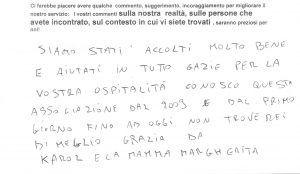 Ci farebbe piacere avere qualche commento, suggerimento, incoraggiamento per migliorare il
nostro servizio: i vostri commenti sulla nostra realtà, sulle persone che
avete incontrato, sul contesto in cui vi siete trovati, saranno preziosi per
noi!
SIAMO STATI ACCOLTI MOLTO BENE
E AIUTATI IN TUTTO GAZIE PER LA
VOSTRA OSPITALITÀ CONOSCO QUESTA
ASSOCIAZIONE DAL 2003 E DAL PRIMO
GIORNO FINO AD OGGI NON TROVEREI
DI MEGLIO GRAZIA DA
KAROL E LA MAMMA MARGHERITA